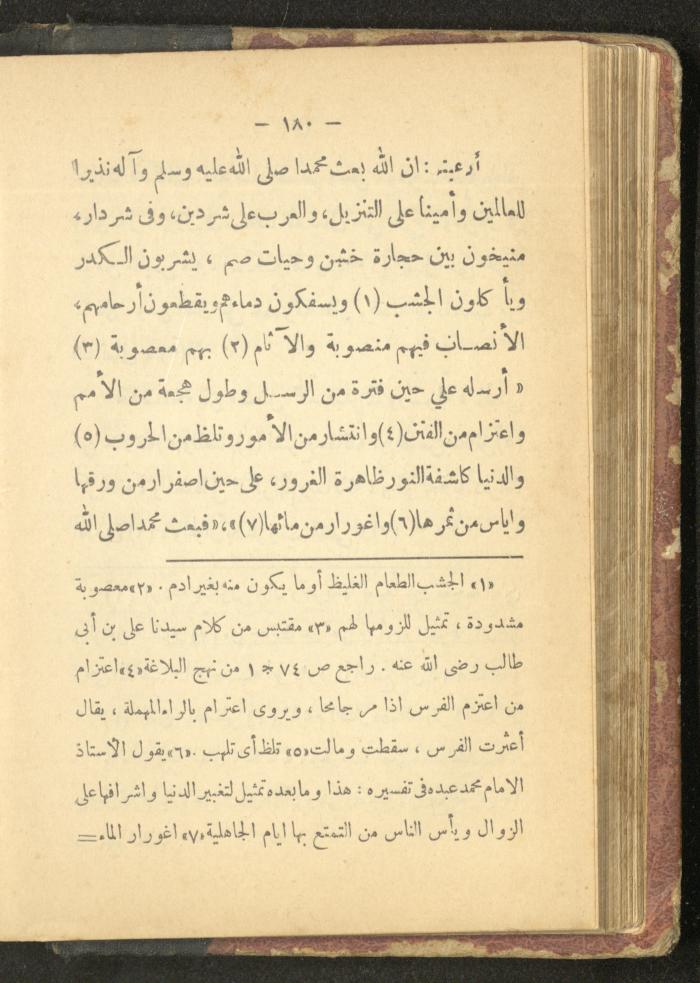 — ١٨٠ —
أرعيته : ان الله بعث محمدا صلى الله عليه وسلم وآله نذيرا
للعالمين وأمينا على التنزيل، والعرب على شر دين، وفى شر دار،
منيخون بين حجارة خشن وحيات صم ، يشربون الكدر
ويأ كلون الجشب (١) ويسفكون دماءهم ويقطعون أرحامهم،
الأنصاب فيهم منصوبة والآثام (٢) بهم معصوبة (٣)
« أرسله علي حين فترة من الرسل وطول هجعة من الأمم
واعتزام من الفتن (٤) وانتشار من الأمور وتلظ من الحروب (٥)
والدنيا كاسفة النور ظاهرة الغرور، على حين اصفرار من ورقها
واياس من ثمرها (٦) واغورار من مائها (٧)» ، « فبعث محمدا صلى الله
«١» الجشب الطعام الغليظ أو ما يكون منه بغير ادم . «٢» معصوبة
مشدودة ، تمثيل للزومها لهم «٣» مقتبس من كلام سيدنا على بن أبى
طالب رضى الله عنه . راجع ص ٧٤ ج ١ من نهج البلاغة «٤» اعتزام
من اعتزم الفرس اذا مر جامحا ، ويروى اعترام بالراء المهملة ، يقال
أعثرت الفرس ، سقطت ومالت «٥» تلظ أى تلهب . «٦» يقول الأستاذ
الامام محمد عبده فى تفسيره : هذا وما بعده تمثيل لتغيير الدنيا واشرافها على
الزوال ويأس الناس من التمتع بها ايام الجاهلية «٧» اغورار الماء =